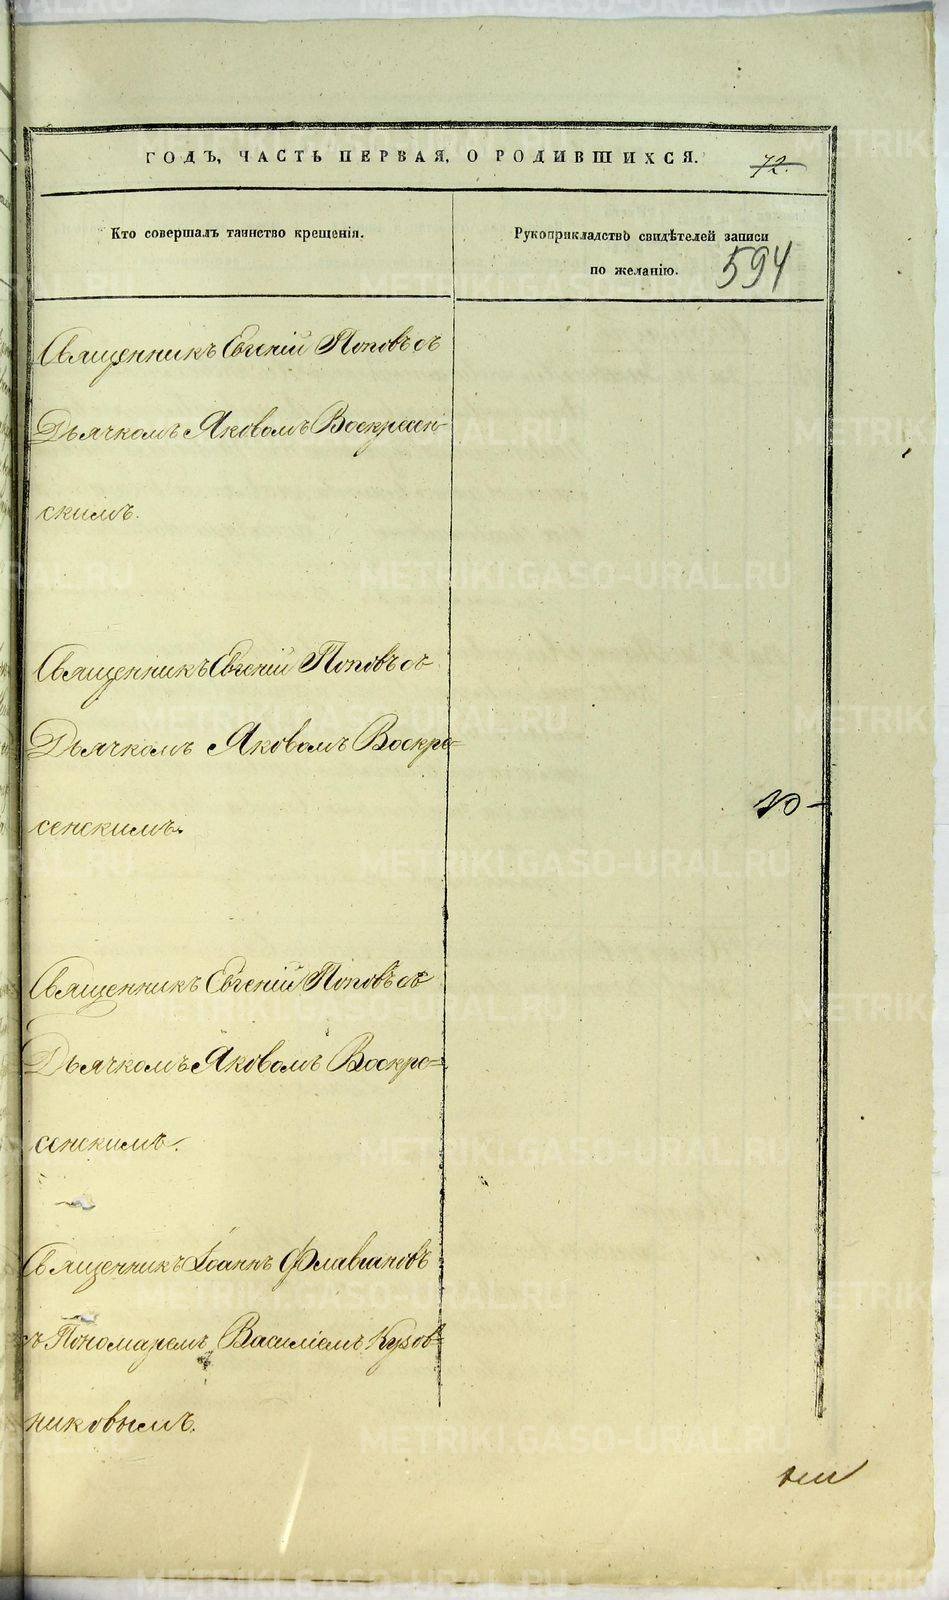 ГОДЪ, ЧАСТЬ ПЕРВАЯ, О РОДИВШИХСЯ.
72.
Кто совершалъ таинство крещенія.
Рукоприкладство свидѣтелей записи
по желанію.
594
Священникъ Евгеній Поповъ съ
Дьячкомъ Яковомъ Воскресен-
скимъ.
Священникъ Евгеній Поповъ съ
Дьячкомъ Яковомъ Воскре=
сенскимъ.
Священникъ Евгеній Поповъ съ
Дьячкомъ Яковомъ Воскре=
сенскимъ.
Священникъ Іоаннъ Флавіановъ
съ Пономаремъ Василіемъ Кузов=
никовымъ.
METRIKI.GASO-URAL.RU